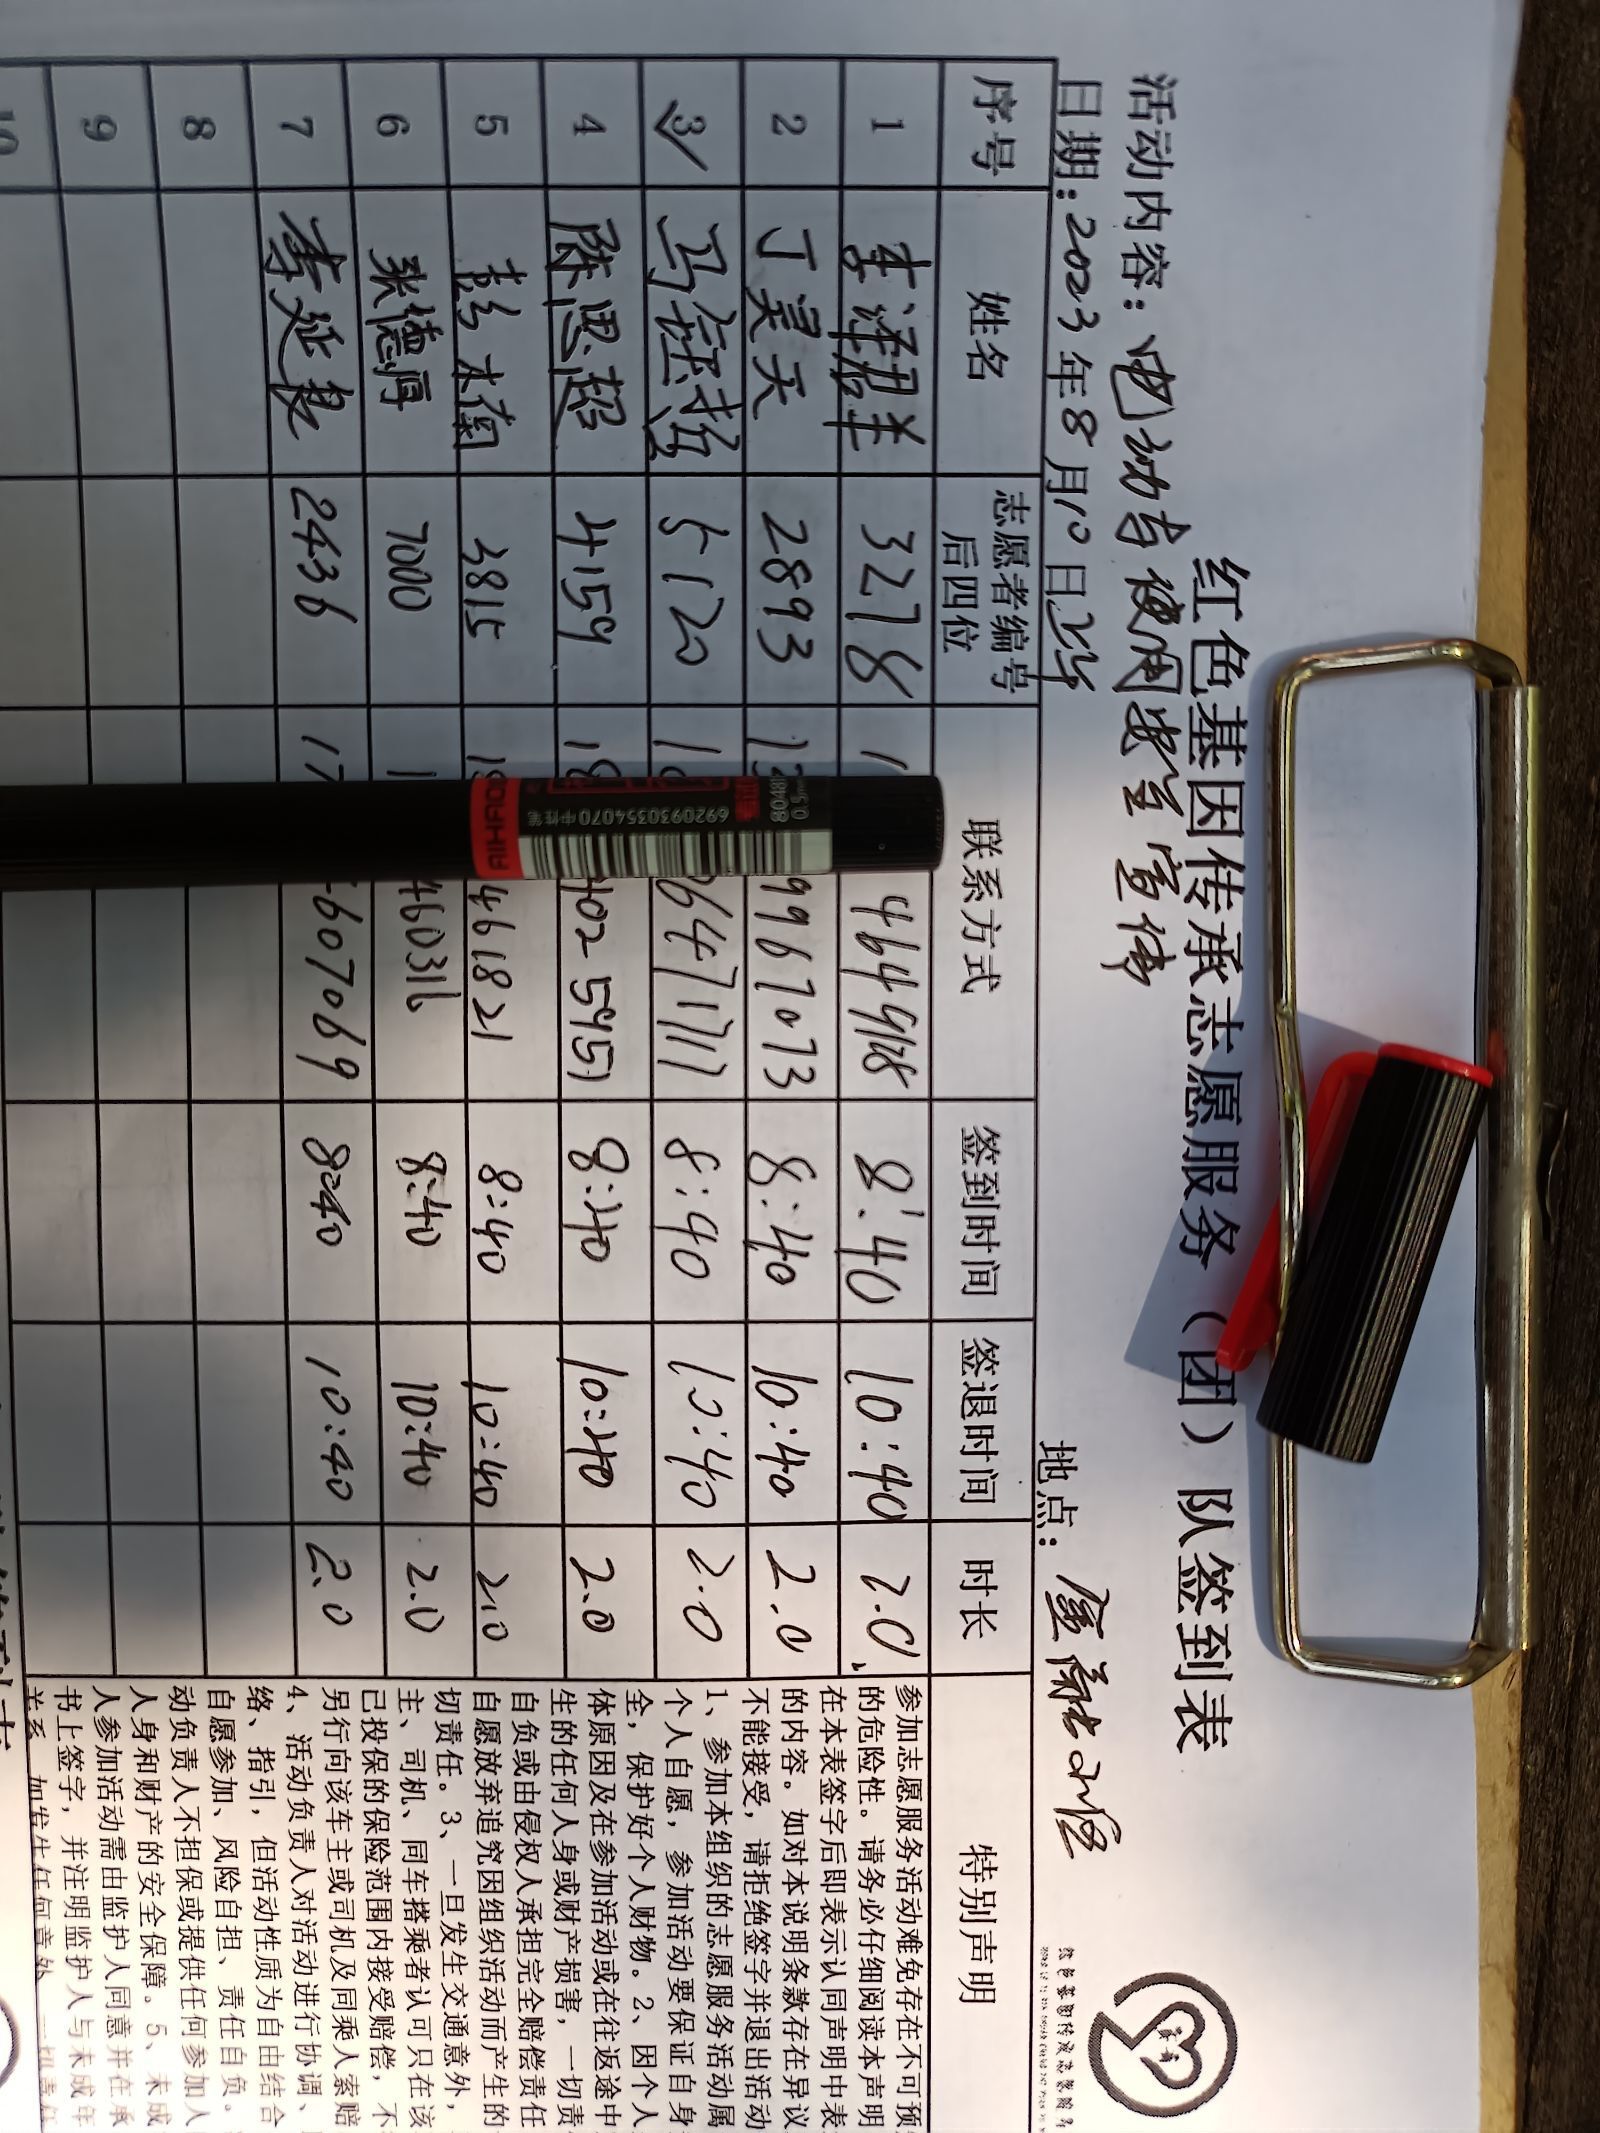 红色基因传承志愿服务（团）队签到表
活动内容：电动车使用安全宣传
日期：2023年8月10日上午 地点：
序号 姓名 志愿者编号后四位 联系方式 签到时间 签退时间 时长 特别声明
1 李泽羊 3278 1 4649128 8:40 10:40 2.0
2 丁昊天 2893 13 99967073 8:40 10:40 2.0
3 马钰 5120 1 6471711 8:40 10:40 2.0
4 陈思超 4159 18 4025951 8:40 10:40 2.0
5 彭木兰 3815 461821 8:40 10:40 2.0
6 张德厚 7000 1 460316 8:40 10:40 2.0
7 李延良 2436 17 607069 8:40 10:40 2.0
8
9
10
参加志愿服务活动难免存在不可预
的危险性。请务必仔细阅读本声明
在本表签字后即表示认同声明中表
的内容。如对本说明条款存在异议
不能接受，请拒绝签字并退出活动
1、参加本组织的志愿服务活动属
个人自愿，参加活动要保证自身
全，保护好个人财物。2、因个人
体原因及在参加活动或在往返途中
生的任何人身或财产损害，一切责
自负或由侵权人承担完全赔偿责任
自愿放弃追究因组织活动而产生的
切责任。3、一旦发生交通意外，
主、司机、同车搭乘者认可只在该
已投保的保险范围内接受赔偿，不
另行向该车主或司机及同乘人索赔
4、活动负责人对活动进行协调、
络、指引，但活动性质为自由结合
自愿参加、风险自担、责任自负。
动负责人不担保或提供任何参加人
人身和财产的安全保障。5、未成
人参加活动需由监护人同意并在承
书上签字，并注明监护人与未成年
关系，如发生任何意外，一切责任
AIHAO
6920930354070 中性笔
8048
0.5mm